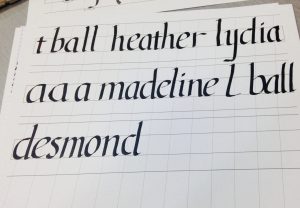 t ball heather lydia
a a a madeline l ball
desmond